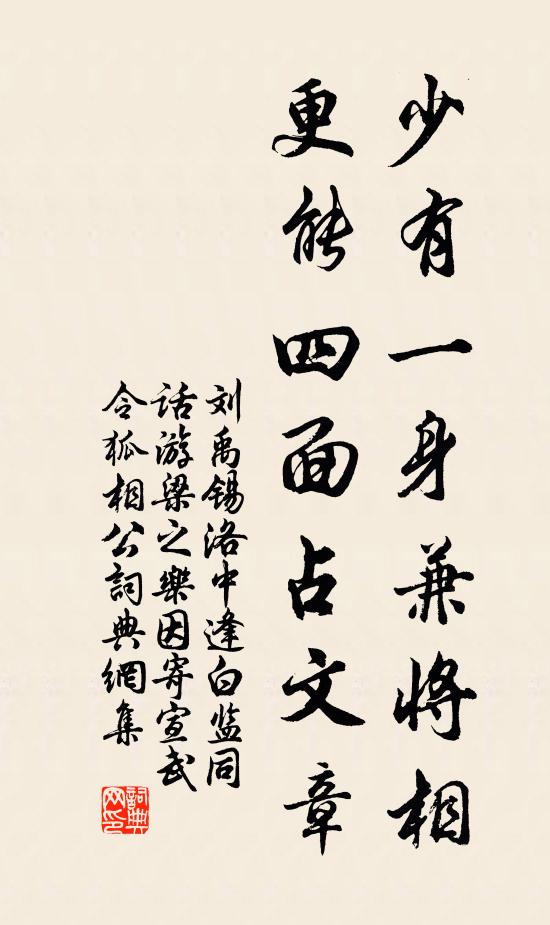 少有一身兼將相
更能四面占文章
刘禹锡洛中逢白监同
话游梁之樂因寄宣武
令狐相公詞典網集
詞典網印